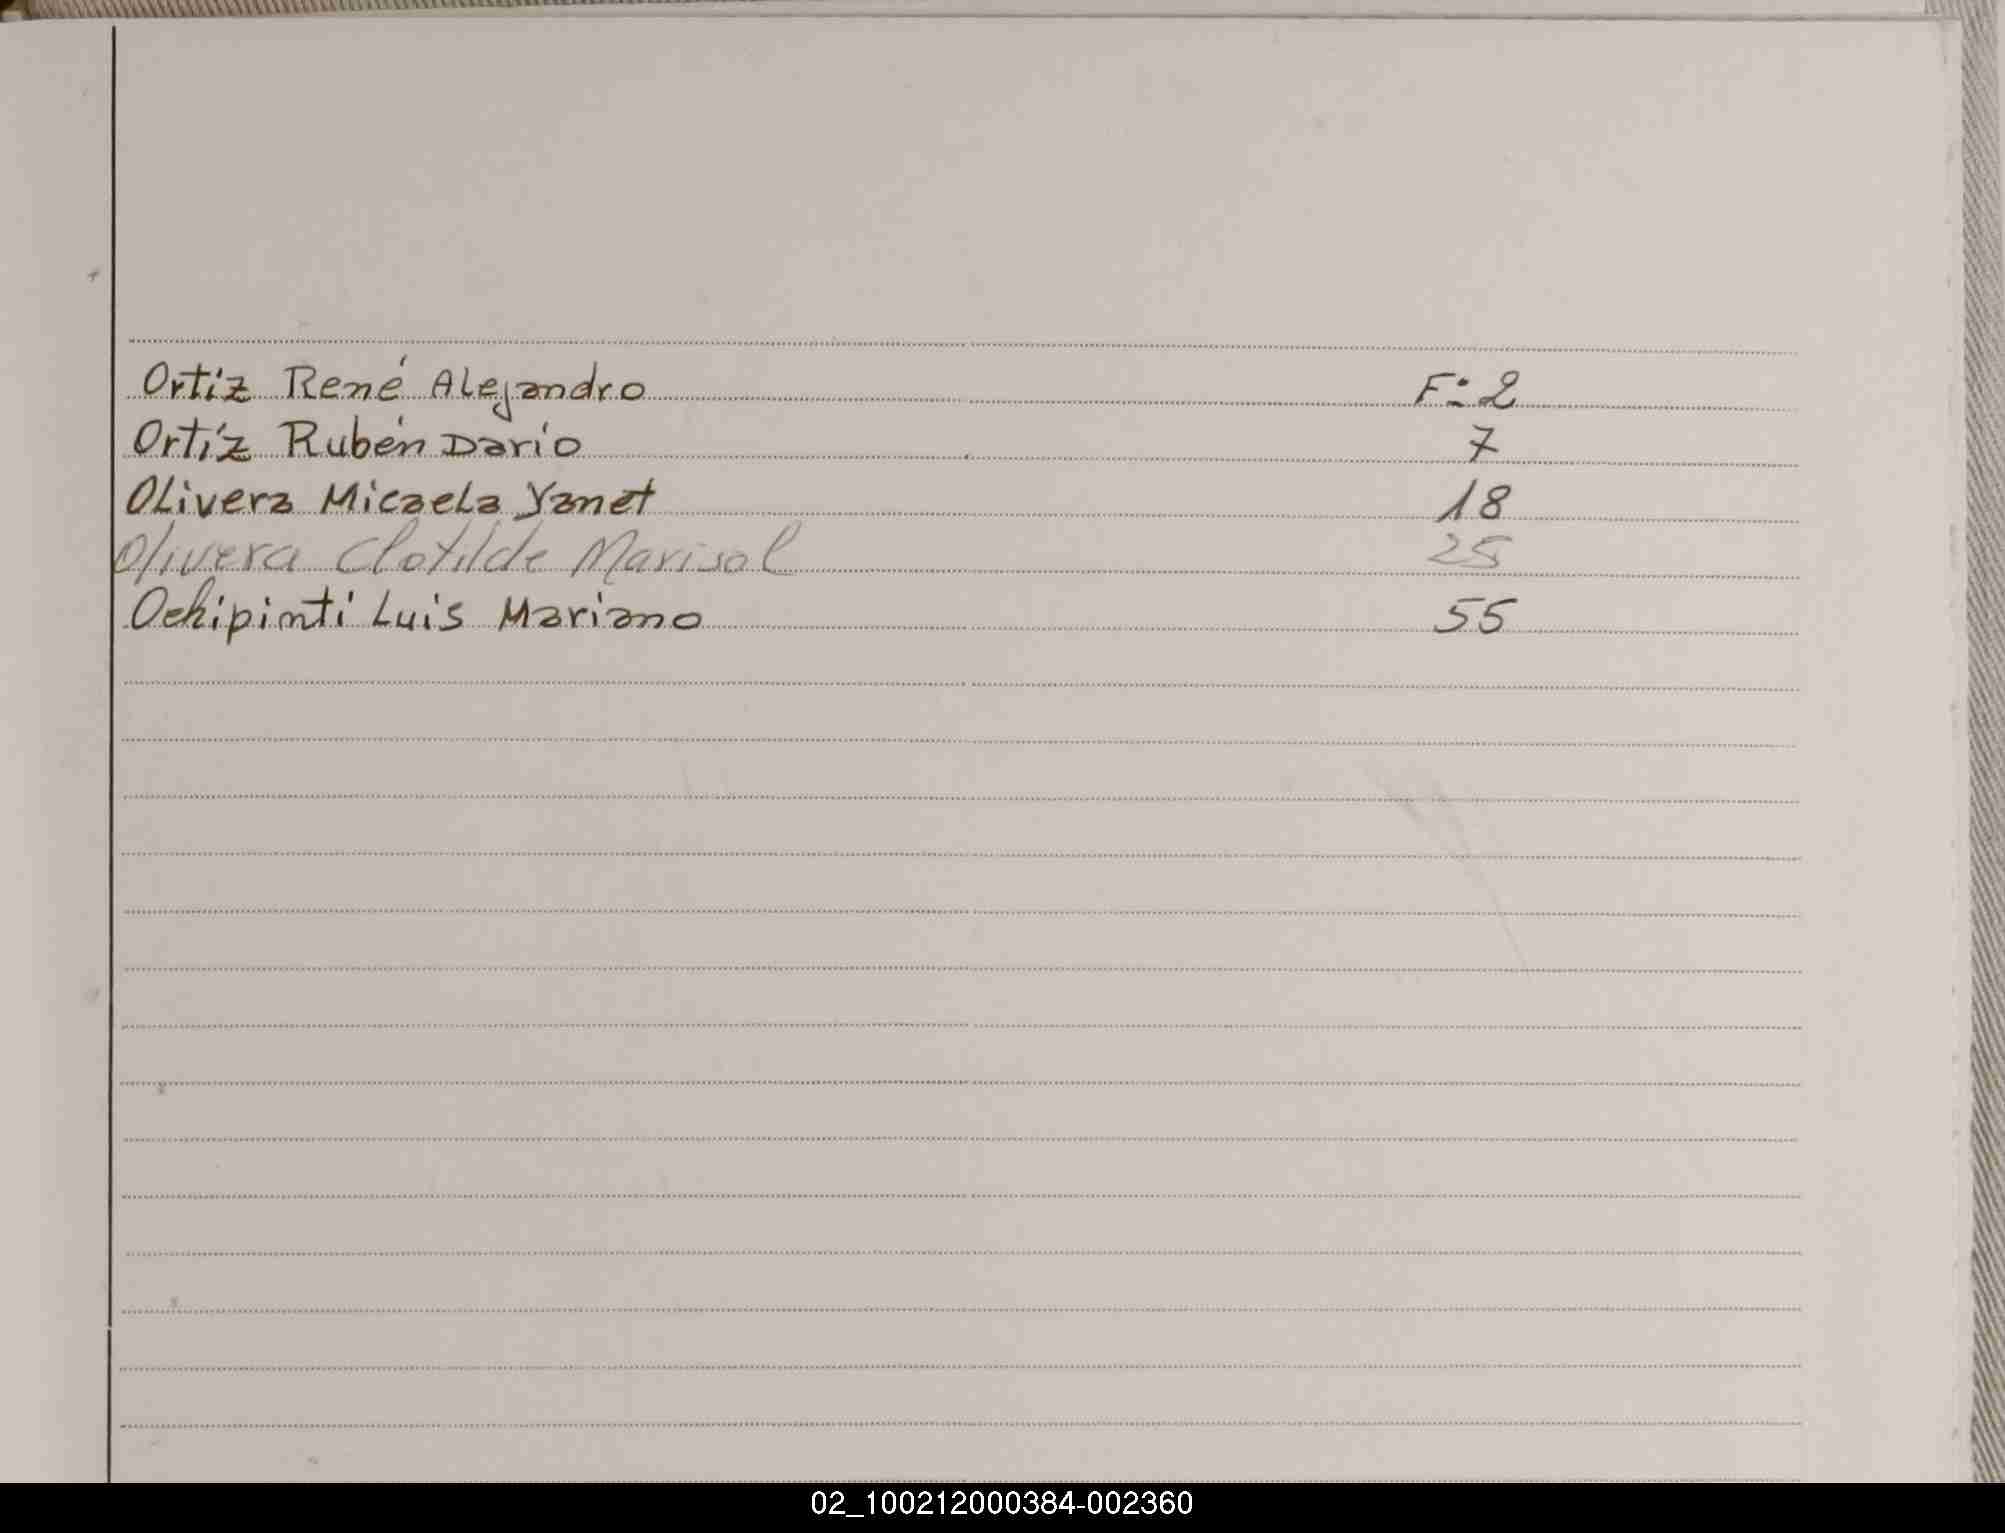 Ortíz René Alejandro F: 2
Ortíz Rubén Darío 7
Olivera Micaela Yanet 18
Olivera Clotilde Marisol 25
Ochipinti Luis Mariano 55
02_100212000384-002360